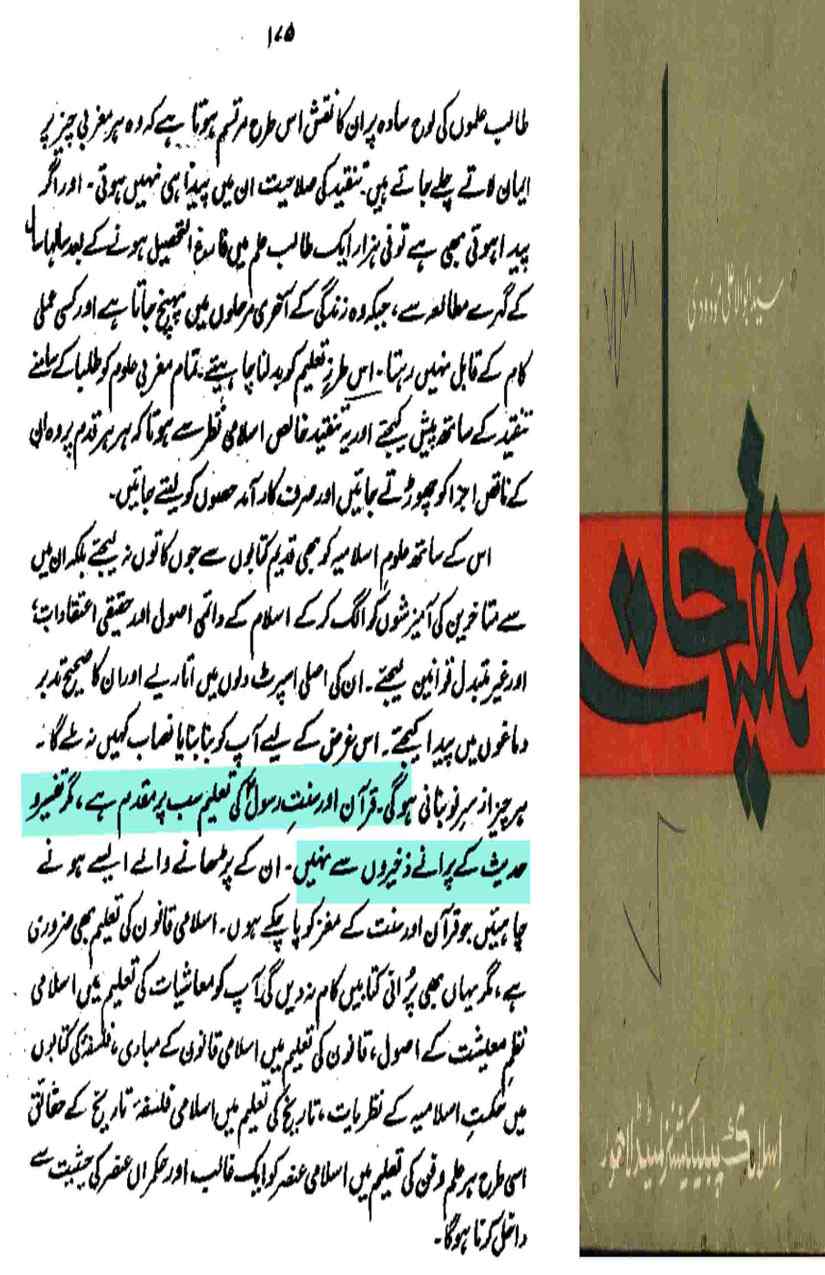 ۱۷۵
طالب علموں کی لوح سادہ پر ان کا نقش اس طرح مرتسم ہوتا ہے کہ وہ ہر مغربی چیز پر
ایمان لاتے چلے جاتے ہیں۔ تنقید کی صلاحیت ان میں پیدا ہی نہیں ہوتی۔ اور اگر
پیدا ہوتی بھی ہے تو فی ہزار ایک طالب علم میں فارغ التحصیل ہونے کے بعد سالہا سال
کے گہرے مطالعہ سے، جبکہ وہ زندگی کے آخری مرحلوں میں پہنچ جاتا ہے اور کسی عملی
کام کے قابل نہیں رہتا۔ اس طرزِ تعلیم کو بدلنا چاہیئے۔ تمام مغربی علوم کو طلبا کے سامنے
تنقید کے ساتھ پیش کیجئے اور یہ تنقید خالص اسلامی نظر سے ہو تاکہ ہر ہر قدم پر وہ ان
کے ناقص اجزا کو چھوڑتے جائیں اور صرف کارآمد حصوں کو لیتے جائیں۔
اس کے ساتھ علومِ اسلامیہ کو بھی قدیم کتابوں سے جوں کا توں نہ لیجئے بلکہ ان میں
سے متاخرین کی آمیزشوں کو الگ کرکے اسلام کے دائمی اصول اور حقیقی اعتقادات،
اور غیر متبدل قوانین لیجئے۔ ان کی اصلی اسپرٹ دلوں میں اتاریے اور ان کا صحیح تدبر
دماغوں میں پیدا کیجئے۔ اس غرض کے لیے آپ کو بنا بنایا نصاب کہیں نہ ملے گا۔
ہر چیز از سرِ نو بنانی ہوگی۔ قرآن اور سنتِ رسولؐ کی تعلیم سب پر مقدم ہے، مگر تفسیر و
حدیث کے پرانے ذخیروں سے نہیں۔ ان کے پڑھانے والے ایسے ہونے
چاہیئیں جو قرآن اور سنت کے مغز کو پا چکے ہوں۔ اسلامی قانون کی تعلیم بھی ضروری
ہے، مگر یہاں بھی پُرانی کتابیں کام نہ دیں گی۔ آپ کو معاشیات کی تعلیم میں اسلامی
نظمِ معیشت کے اصول، قانون کی تعلیم میں اسلامی قانون کے مبادی، فلسفہ کی کتابوں
میں حکمتِ اسلامیہ کے نظریات، تاریخ کی تعلیم میں اسلامی فلسفۂ تاریخ کے حقائق
اسی طرح ہر علم و فن کی تعلیم میں اسلامی عنصر کو ایک غالب اور حکمراں عنصر کی حیثیت سے
داخل کرنا ہوگا۔
سید ابوالاعلیٰ مودودی
تنقیحات
اسلامک پبلیکیشنز لمیٹڈ لاہور